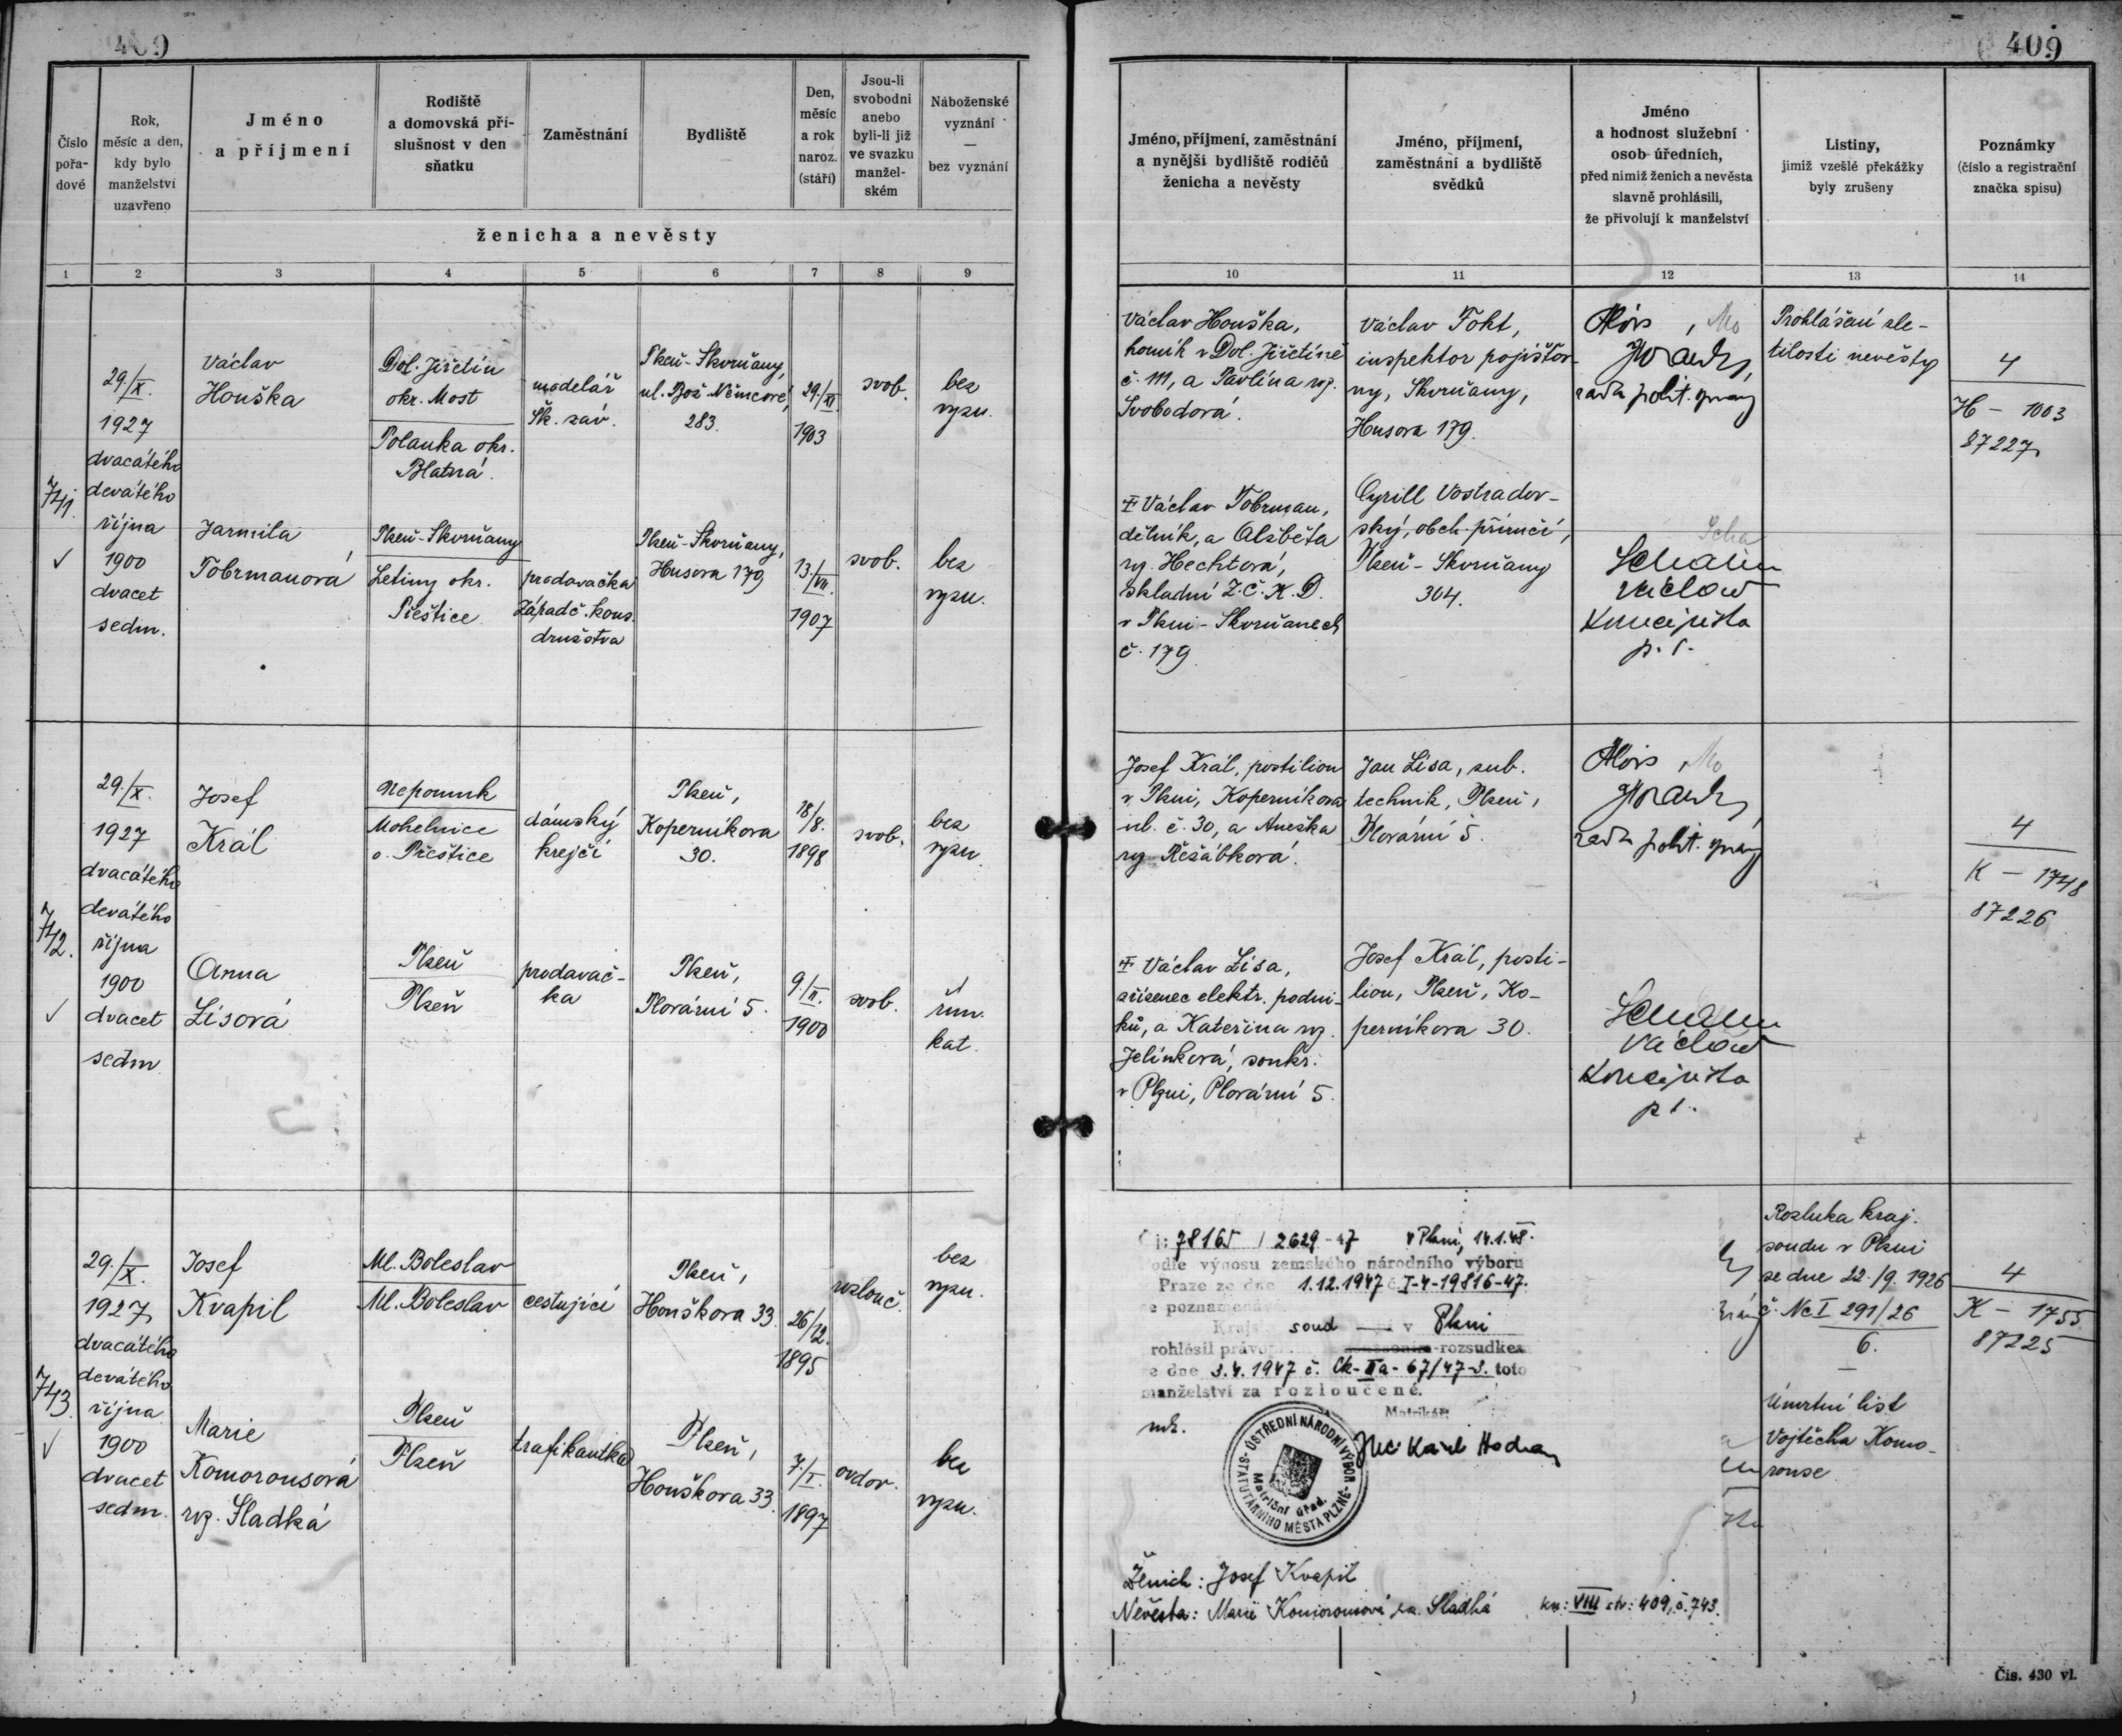 409
409
Číslo
pořa-
dové
Rok,
měsíc a den,
kdy bylo
manželství
uzavřeno
Jméno
a příjmení
Rodiště
a domovská pří-
slušnost v den
sňatku
Zaměstnání
Bydliště
Den,
měsíc
a rok
naroz.
(stáří)
Jsou-li
svobodni
anebo
byli-li již
ve svazku
manžel-
ském
Náboženské
vyznání
—
bez vyznání
ženicha a nevěsty
Jméno, příjmení, zaměstnání
a nynější bydliště rodičů
ženicha a nevěsty
Jméno, příjmení,
zaměstnání a bydliště
svědků
Jméno
a hodnost služební
osob úředních,
před nimiž ženich a nevěsta
slavně prohlásili,
že přivolují k manželství
Listiny,
jimiž vzešlé překážky
byly zrušeny
Poznámky
(číslo a registrační
značka spisu)
1 2 3 4 5 6 7 8 9
10 11 12 13 14
741.
✓
29./X.
1927
dvacátého
devátého
října
1900
dvacet
sedm.
Václav
Houška
Dol. Jiřetín
okr. Most
Polanka okr.
Blatná
modelář
Šk. záv.
Plzeň-Skvrňany,
ul. Bož. Němcové,
283.
29./XI.
1903
svob.
bez
vyzn.
Jarmila
Tobrmanová
Plzeň-Skvrňany
Letiny okr.
Přeštice
prodavačka
Západč. kons.
družstva
Plzeň-Skvrňany,
Husova 179
13./VII.
1907
svob.
bez
vyzn.
Václav Houška,
horník v Dol. Jiřetíně
č. 111, a Pavlína roz.
Svobodová.
Václav Fokt,
inspektor pojišťov-
ny, Skvrňany,
Husova 179.
Alois
rada polit. správy
Prohlášení zle-
tilosti nevěsty
4
H - 1003
87227
‡ Václav Tobrman,
dělník, a Alžběta
roz. Hechtová,
skladní Z.Č.K.D.
v Plzni-Skvrňanech
č. 179
Cyrill Vostradov-
ský, obch. příručí,
Plzeň-Skvrňany
304.
Václav
koncipista
p. s.
742.
✓
29./X.
1927
dvacátého
devátého
října
1900
dvacet
sedm
Josef
Král
Nepomuk
Mohelnice
o. Přeštice
dámský
krejčí
Plzeň,
Koperníkova
30.
18/8.
1898
svob.
bez
vyzn.
Anna
Lísová
Plzeň
Plzeň
prodavač-
ka
Plzeň,
Plovární 5.
9./II.
1900
svob.
řím.
kat.
Josef Král, postilion
v Plzni, Koperníkova
ul. č. 30, a Anežka
roz. Řežábková.
Jan Lísa, zub.
technik, Plzeň,
Plovární 5.
Alois
rada polit. správy
4
K - 1748
87226
‡ Václav Lísa,
zřízenec elektr. podni-
ků, a Kateřina roz.
Jelínková, soukr.
v Plzni, Plovární 5.
Josef Král, posti-
lion, Plzeň, Ko-
perníkova 30.
Václav
koncipista
p. s.
743.
✓
29./X.
1927
dvacátého
devátého
října
1900
dvacet
sedm.
Josef
Kvapil
Ml. Boleslav
Ml. Boleslav
cestující
Plzeň,
Houškova 33.
26/12.
1895
rozlouč.
bez
vyzn.
Marie
Komorousová
roz. Sladká
Plzeň
Plzeň
trafikantka
Plzeň,
Houškova 33.
7./I.
1897
ovdov.
bez
vyzn.
Čj: 78165 / 2629-47 v Plzni, 14.1.48.
odle výnosu zemského národního výboru
Praze ze dne 1.12.1947 č. I-4-19816-47.
e poznamen
Krajs soud v Plzni
rohlásil práv rozsudkem
e dne 3.4.1947 č. Ck-IIa-67/47-3. toto
manželství za rozloučené.
Matrikář:
JUC. Karel
ÚSTŘEDNÍ NÁRODNÍ VÝBOR
STATUTÁRNÍHO MĚSTA PLZNĚ
Matriční úřad.
Ženich: Josef Kvapil
Nevěsta: Marie Komorousová roz. Sladká kn: VIII str: 409, č. 743.
Rozluka kraj.
soudu v Plzni
ze dne 22./9. 1926
č. Nc I 291/26
6.
Úmrtní list
Vojtěcha Komo-
rouse.
4
K - 1755
87225
Čís. 430 vl.